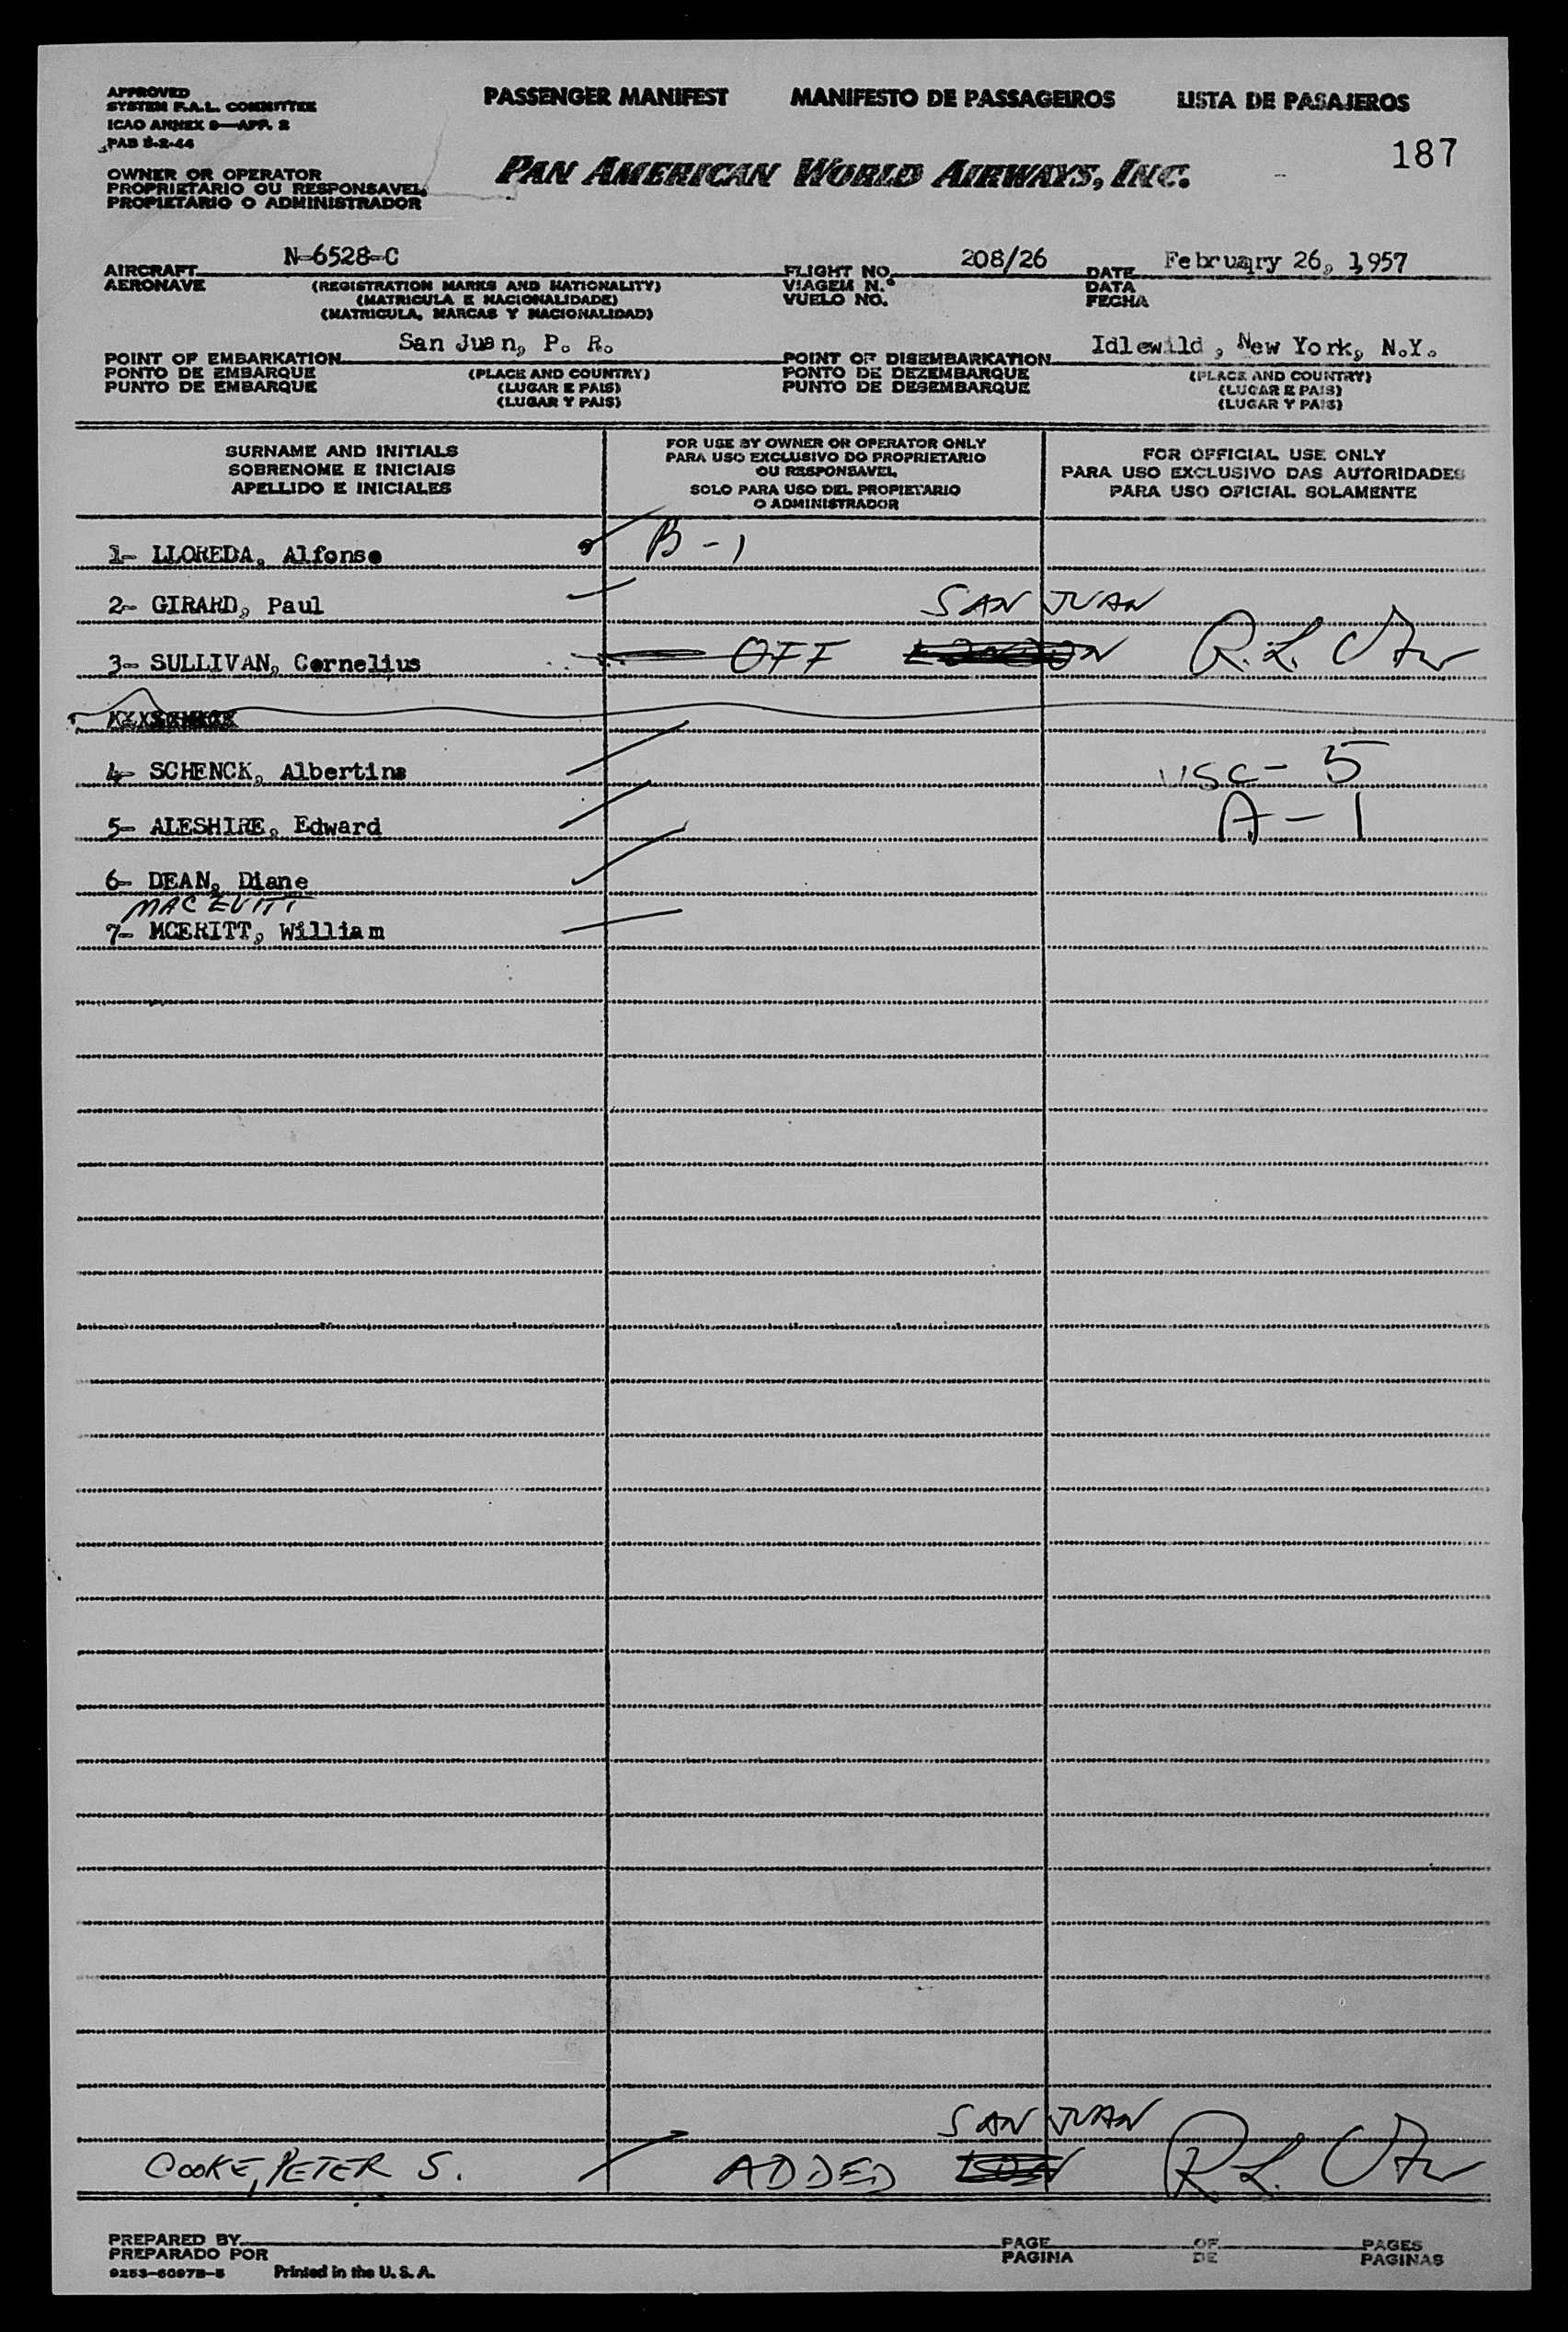 APPROVED
SYSTEM F.A.L. COMMITTEE
ICAO ANNEX 9—APP. 2
PAB 8-2-44
PASSENGER MANIFEST MANIFESTO DE PASSAGEIROS LISTA DE PASAJEROS
187
OWNER OR OPERATOR
PROPRIETARIO OU RESPONSAVEL
PROPIETARIO O ADMINISTRADOR
PAN AMERICAN WORLD AIRWAYS, INC.
AIRCRAFT N-6528-C FLIGHT NO. 208/26 DATE February 26, 1957
AERONAVE (REGISTRATION MARKS AND NATIONALITY) VIAGEM N.º DATA
(MATRICULA E NACIONALIDADE) VUELO NO. FECHA
(MATRICULA, MARCAS Y NACIONALIDAD)
POINT OF EMBARKATION San Juan, P. R. POINT OF DISEMBARKATION Idlewild, New York, N.Y.
PONTO DE EMBARQUE (PLACE AND COUNTRY) PONTO DE DEZEMBARQUE (PLACE AND COUNTRY)
PUNTO DE EMBARQUE (LUGAR E PAIS) PUNTO DE DESEMBARQUE (LUGAR E PAIS)
(LUGAR Y PAIS) (LUGAR Y PAIS)
SURNAME AND INITIALS
SOBRENOME E INICIAIS
APELLIDO E INICIALES
FOR USE BY OWNER OR OPERATOR ONLY
PARA USO EXCLUSIVO DO PROPRIETARIO
OU RESPONSAVEL
SOLO PARA USO DEL PROPIETARIO
O ADMINISTRADOR
FOR OFFICIAL USE ONLY
PARA USO EXCLUSIVO DAS AUTORIDADES
PARA USO OFICIAL SOLAMENTE
1- LLOREDA, Alfonso B-1
2- GIRARD, Paul SAN JUAN
3- SULLIVAN, Cornelius OFF R.L.
4- SCHENCK, Albertina USC-5
5- ALESHIRE, Edward A-1
6- DEAN, Diane
MAC EVITT
7- MCERITT, William
SAN JUAN
COOKE, PETER S. ADDED R.L.
PREPARED BY PAGE OF PAGES
PREPARADO POR PAGINA DE PAGINAS
9253-6097B-5 Printed in the U. S. A.